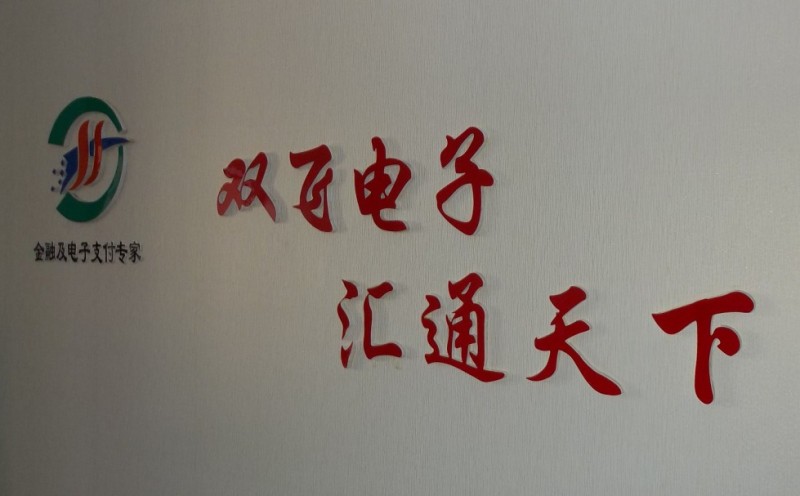 金融及电子支付专家
双电子
汇通天下